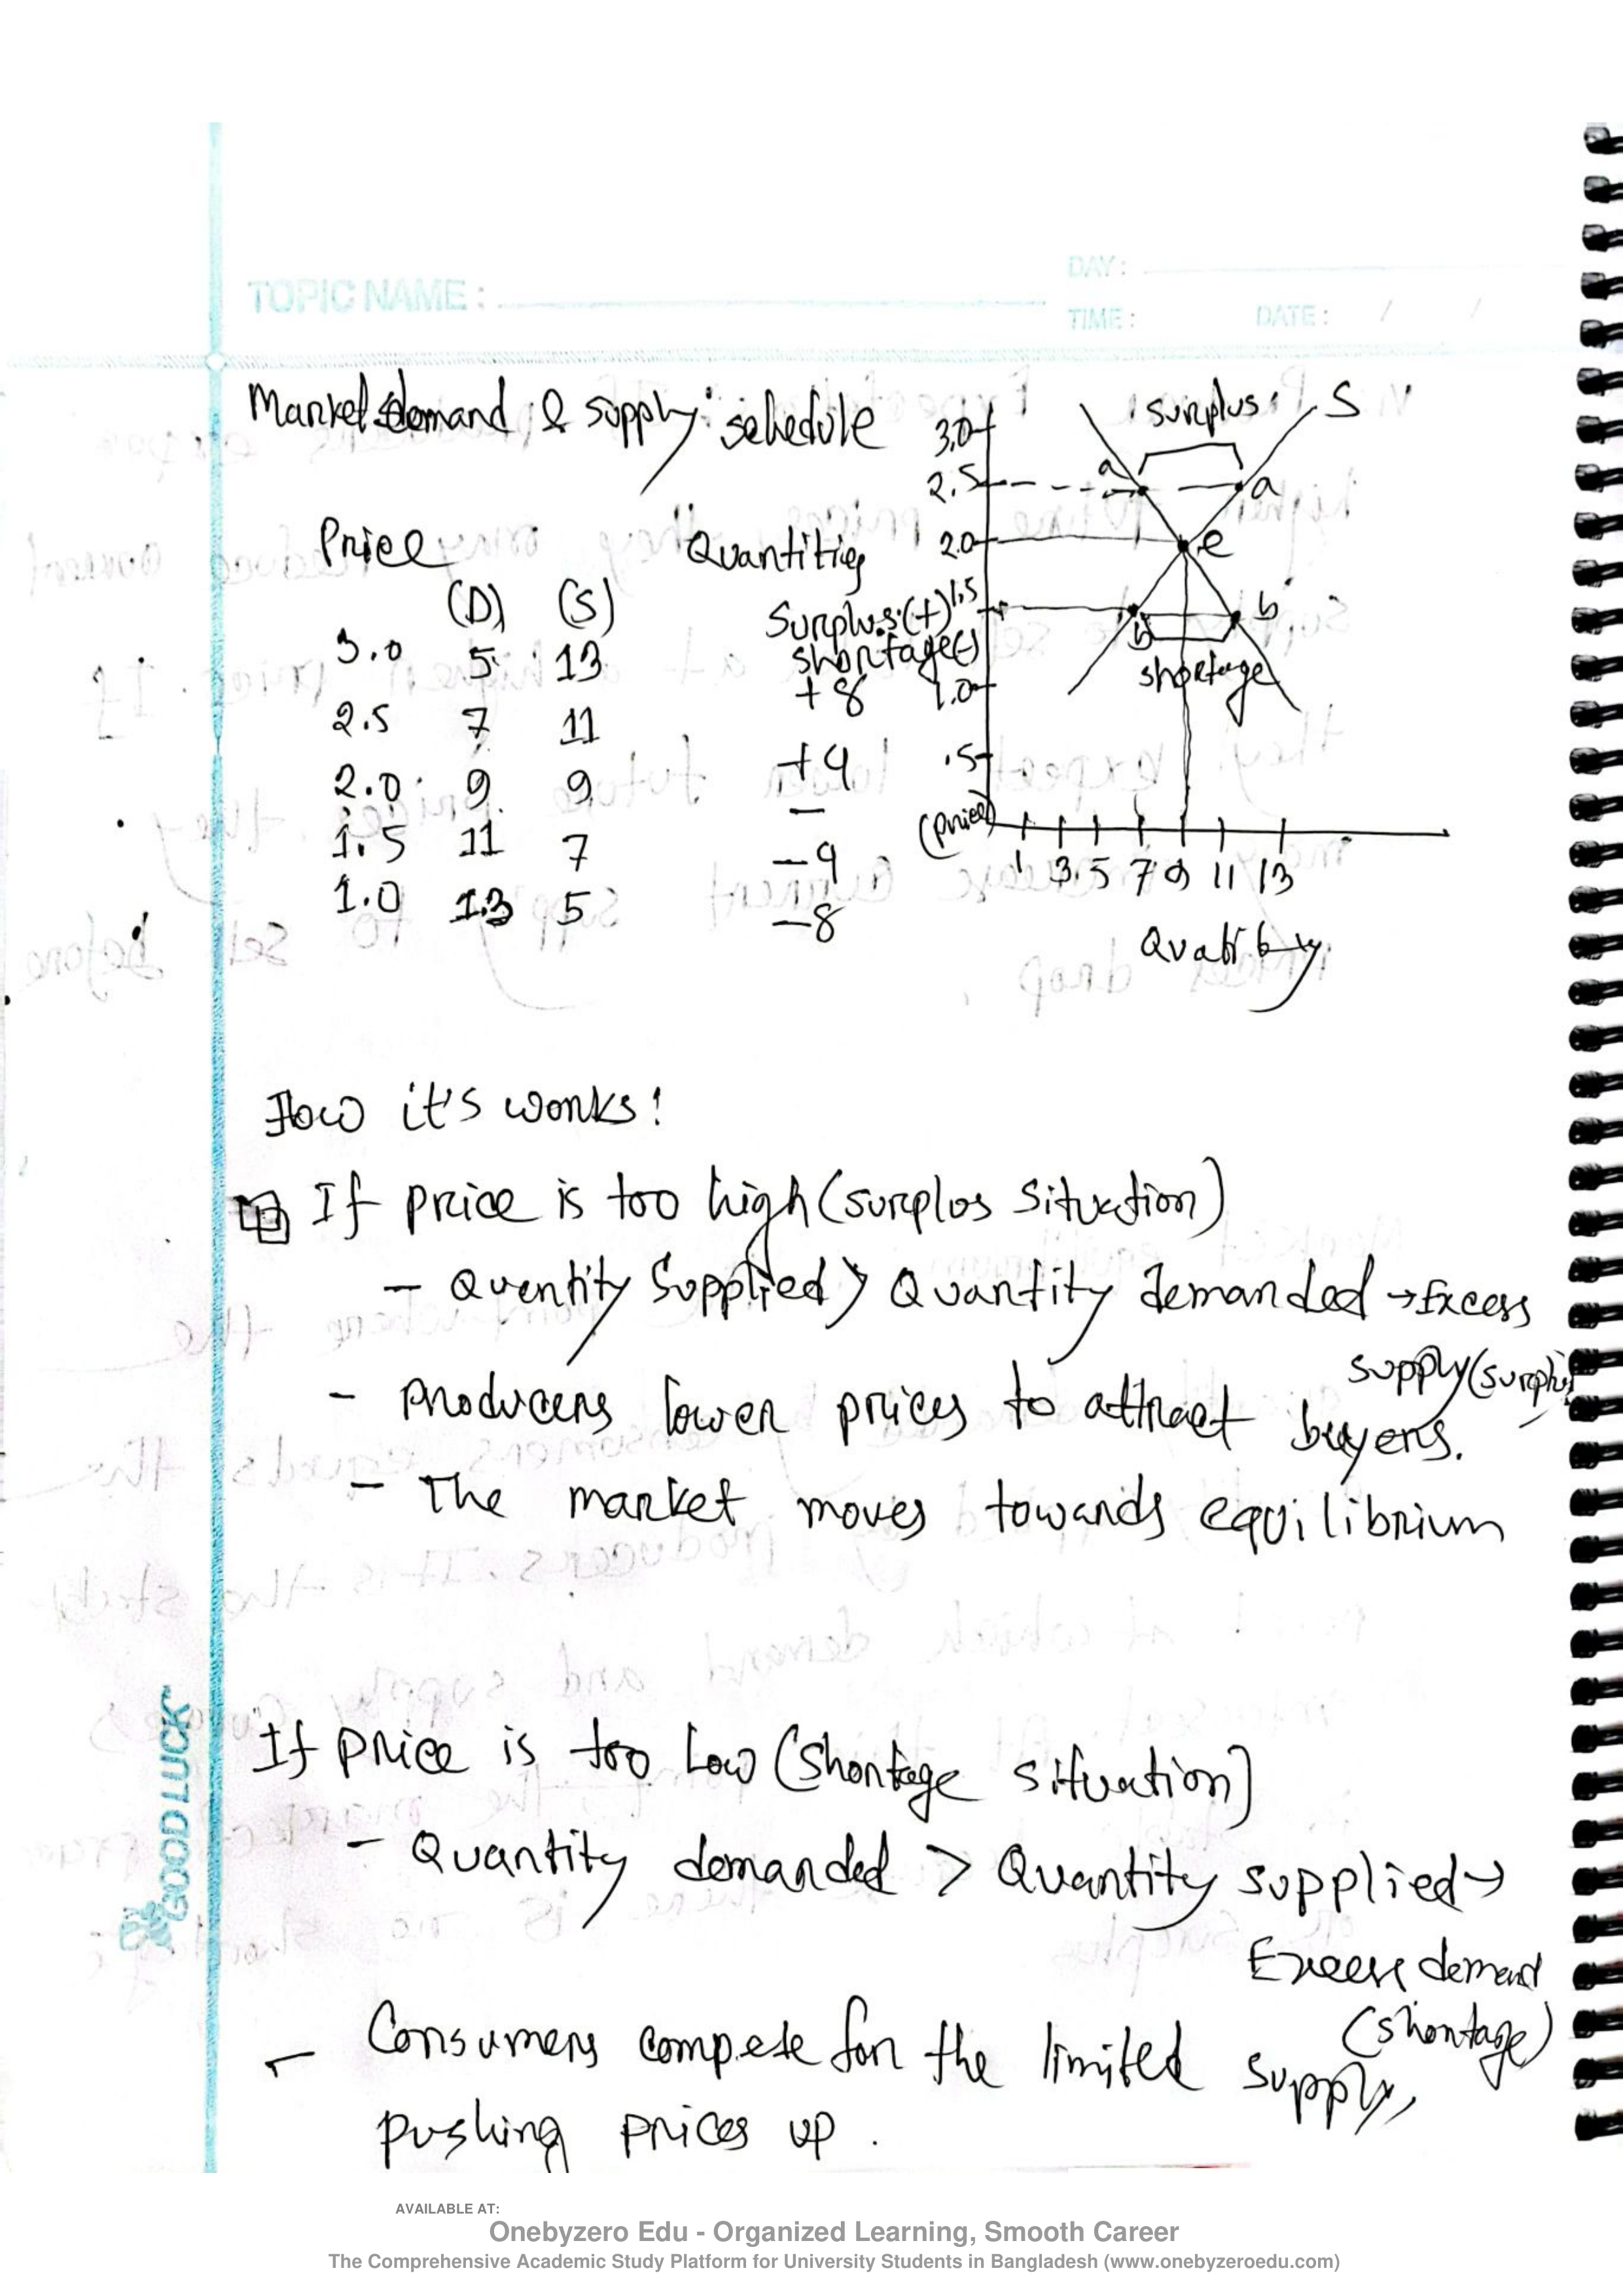 TOPIC NAME :
DAY :
TIME :
DATE : / /
Market demand & supply schedule
Price Quantities
(D) (S) Surplus(+)
shortage(-)
3.0 5 13 +8
2.5 7 11 +4
2.0 9 9 -
1.5 11 7 -4
1.0 13 5 -8
surplus S
3.0
2.5 a a
2.0 e
1.5 b b
shortage
1.0
.5
(price)
1 3 5 7 9 11 13
Quatity
How it's works!
If price is too high (surplus situation)
- Quentity Supplied > Quantity demanded → Excess
supply (surplus
- producers lower prices to attract buyers.
- The market moves towards equilibrium
If price is too Low (shortage situation)
- Quantity demanded > Quantity supplied →
Excess demand
(shortage)
- Consumers compete for the limited supply,
pushing prices up.
GOOD LUCK
AVAILABLE AT:
Onebyzero Edu - Organized Learning, Smooth Career
The Comprehensive Academic Study Platform for University Students in Bangladesh (www.onebyzeroedu.com)